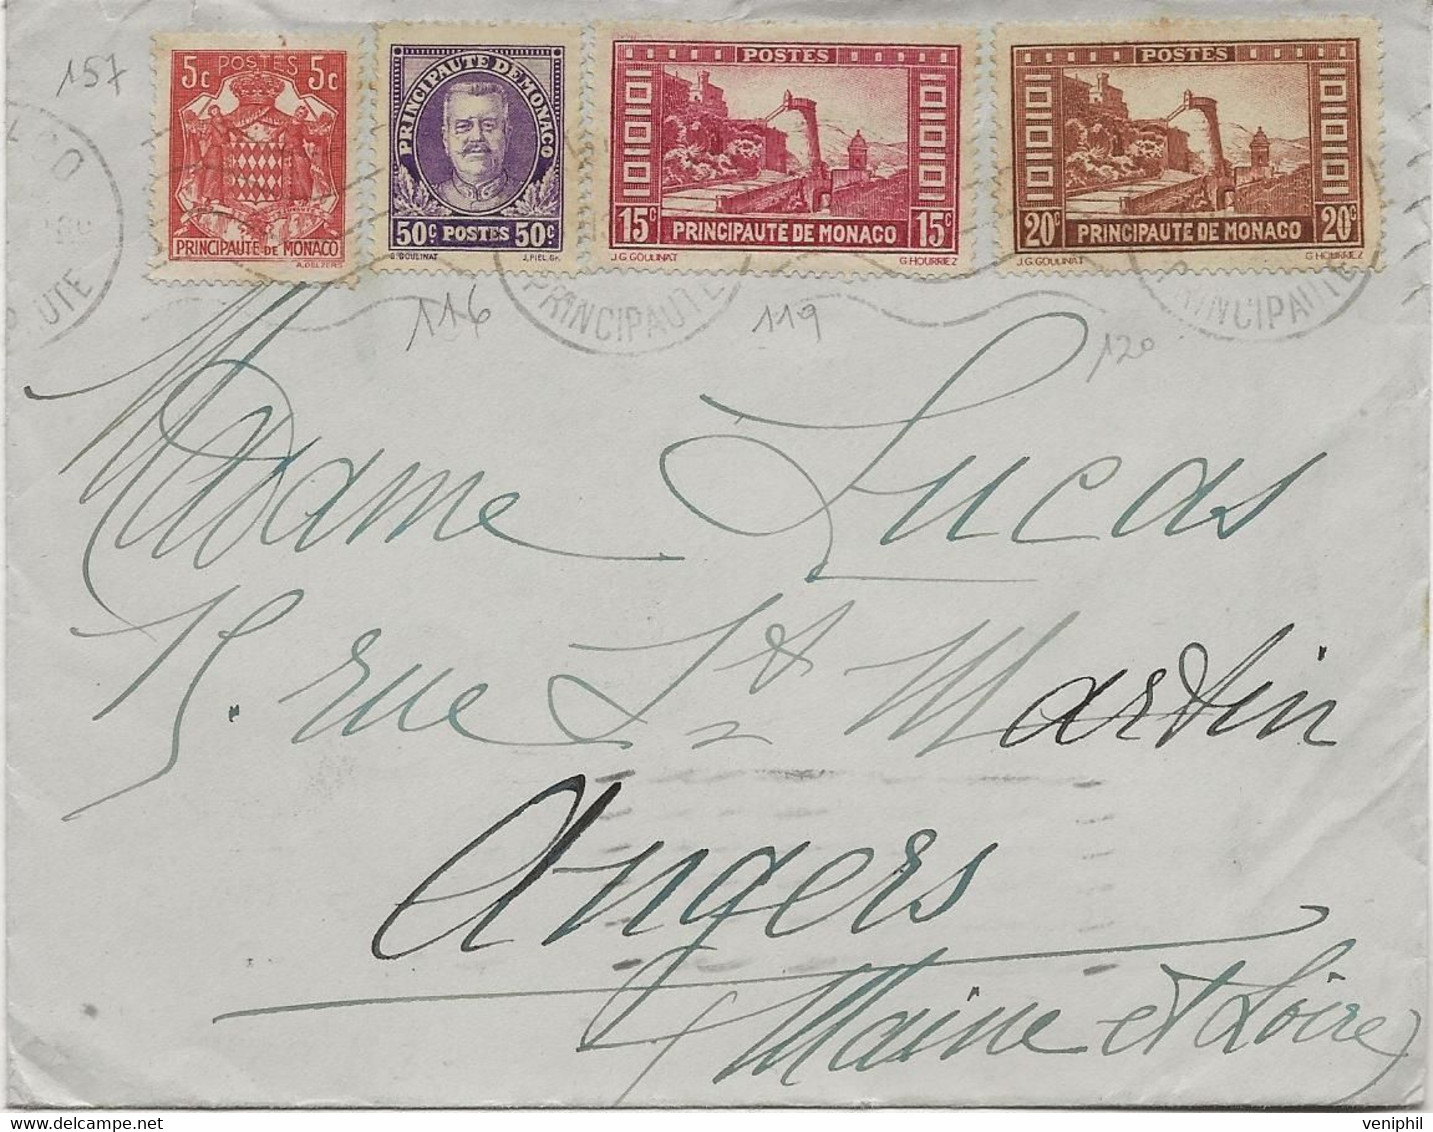 157
5c POSTES 5c
PRINCIPAUTÉ DE MONACO
A. DELZERS
PRINCIPAUTE DE MONACO
50c POSTES 50c
G. GOULINAT J. PIEL. Gr.
POSTES
15c PRINCIPAUTE DE MONACO 15c
J.G. GOULINAT G. HOURRIEZ
POSTES
20c PRINCIPAUTE DE MONACO 20c
J.G. GOULINAT G. HOURRIEZ
PRINCIPAUTE
PRINCIPAUTE
116
119
120
Madame Lucas
15. rue St Martin
Angers
(Maine et Loire)
veniphil